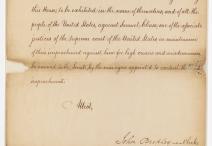 this House, to be exhibited in the name of themselves, and of all the
people of the United States, against Samuel Chase, one of the associate
justices of the supreme court of the United States in maintenance
of their impeachment against him for high crimes and misdemeanors
be carried to the Senate by the managers appointed to conduct the said
impeachment.
Attest,
John Beckley